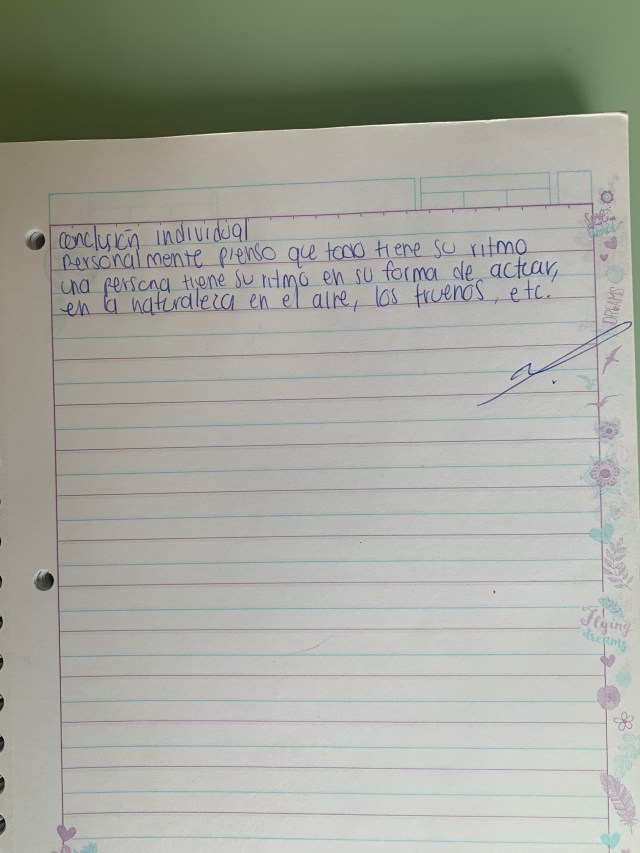 conclusión individual
personalmente pienso que todo tiene su ritmo
una persona tiene su ritmo en su forma de actuar,
en la naturaleza en el aire, los truenos, etc.
DREAMS
Flying
dreams